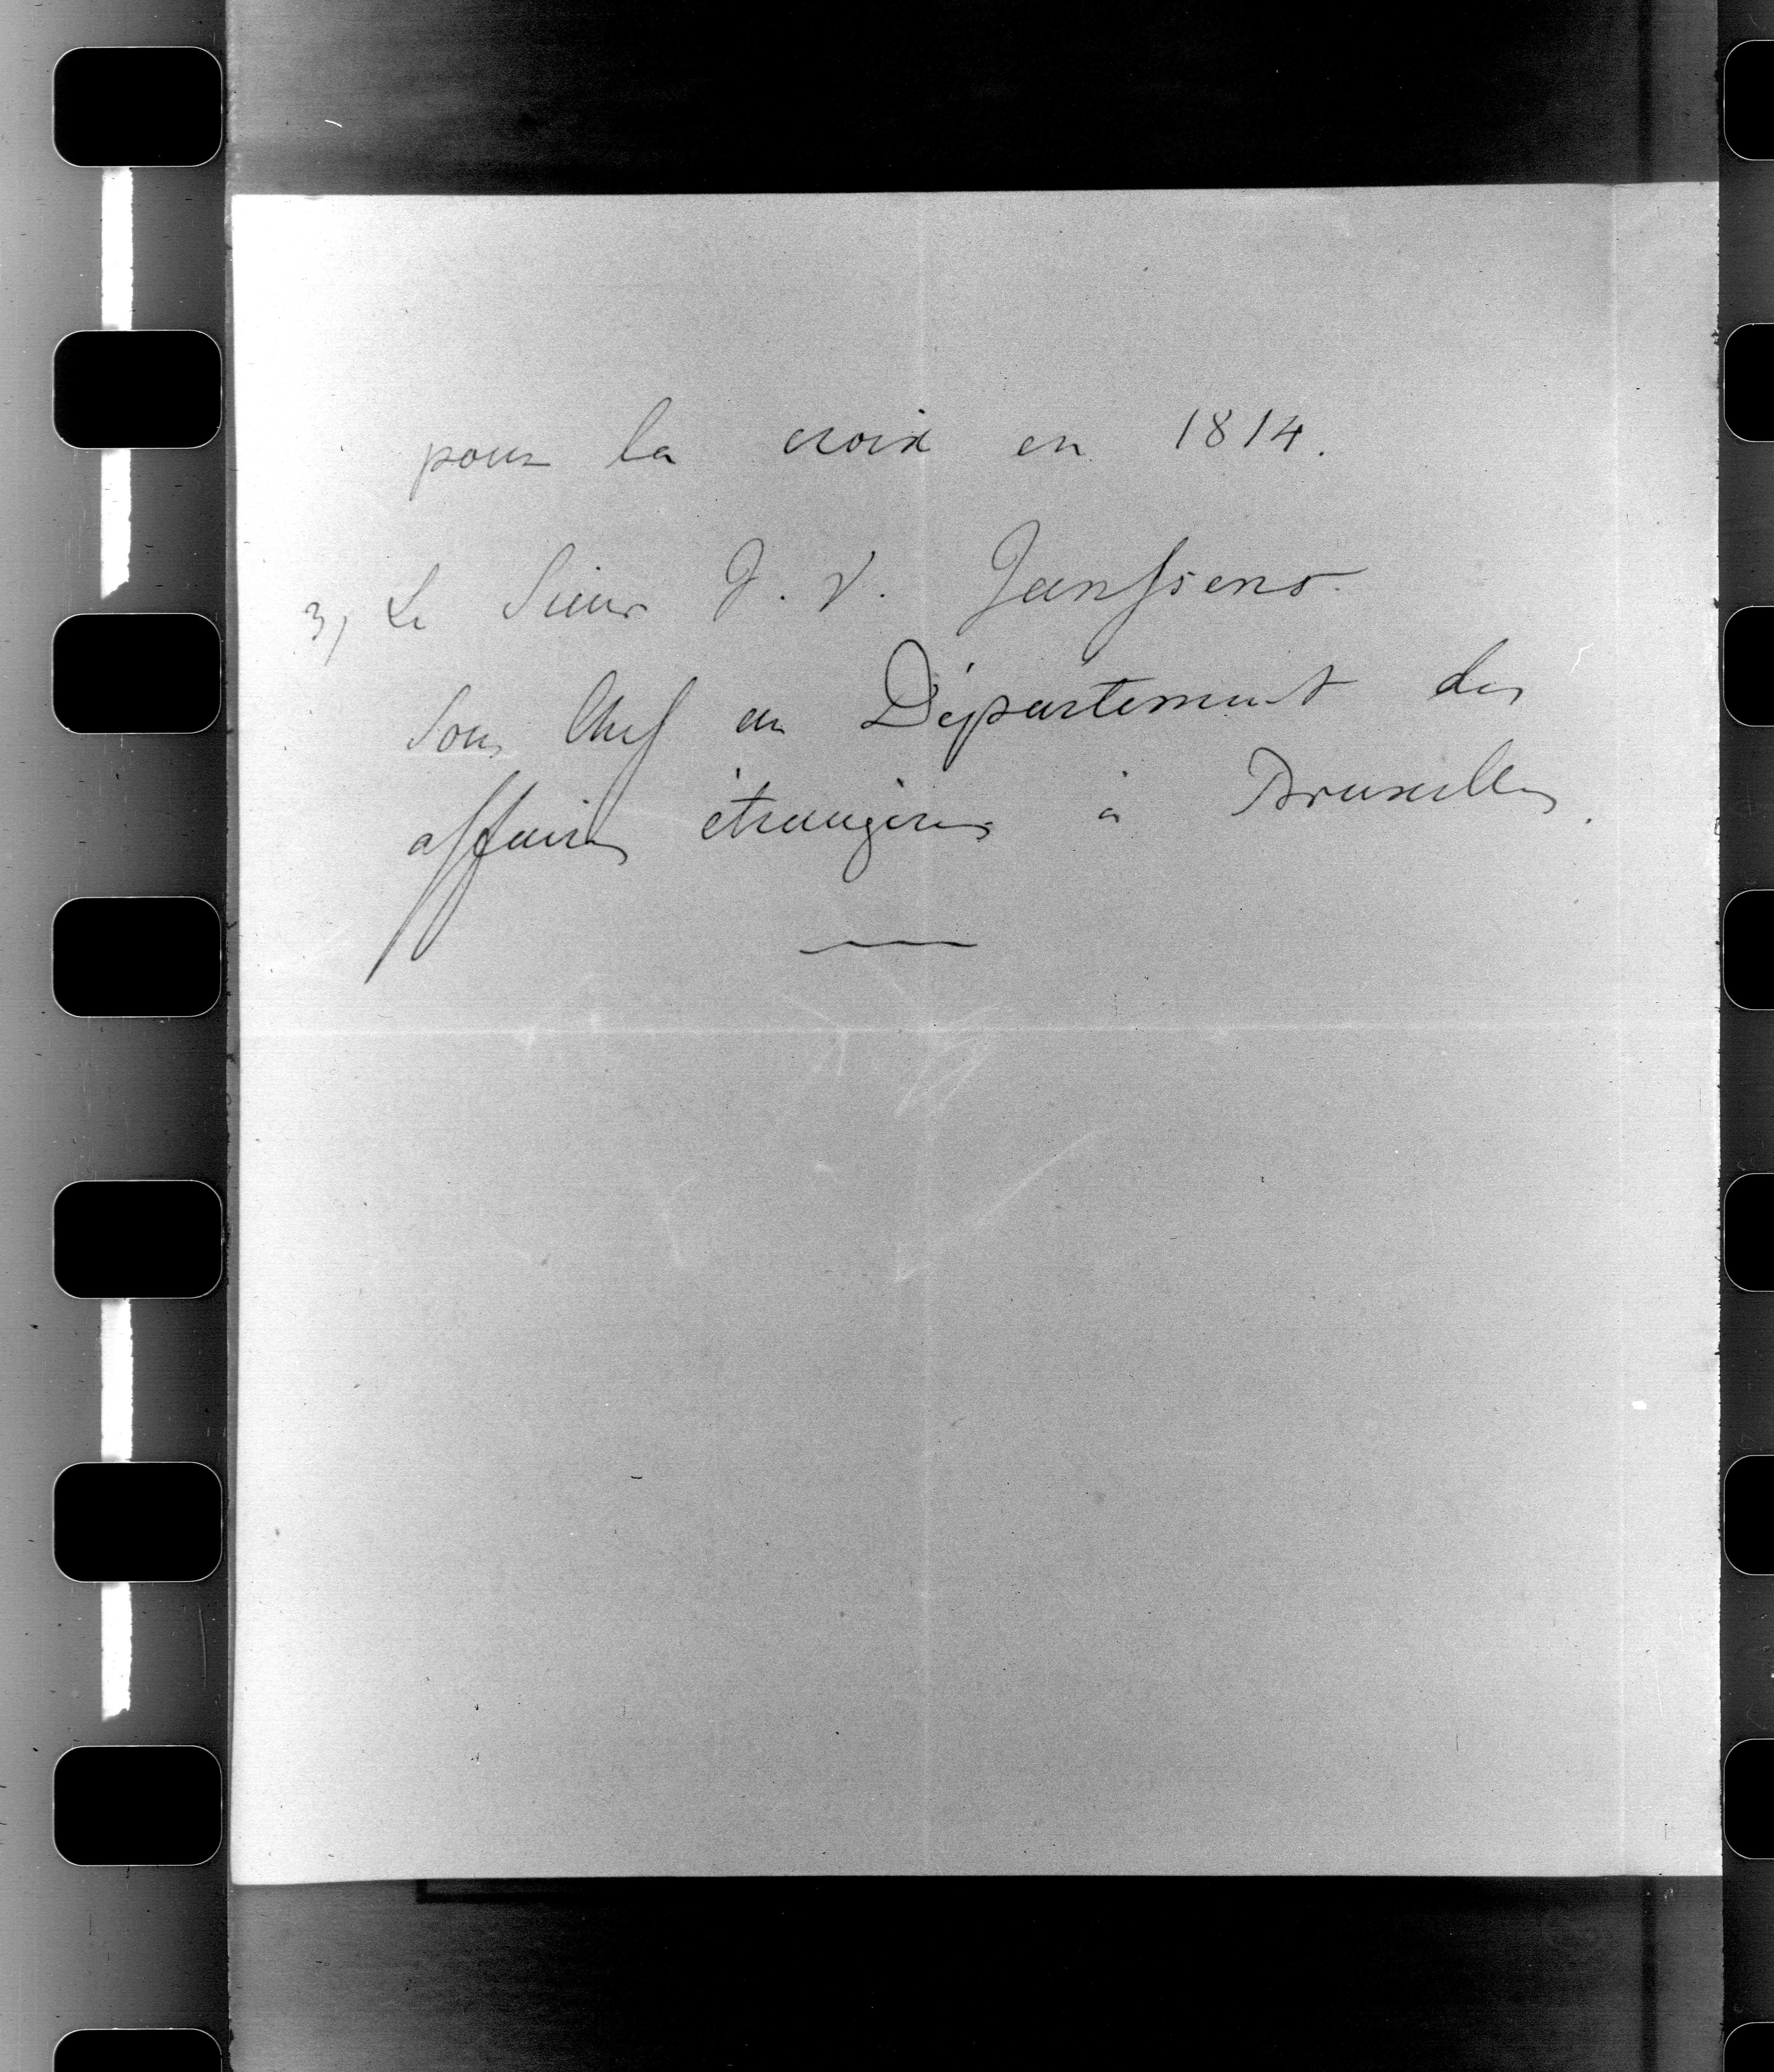 pour la croix en 1814.
3, Le Sieur J. V. Janssens
Sous Chef au Département des
affaires étrangères à Bruxelles.